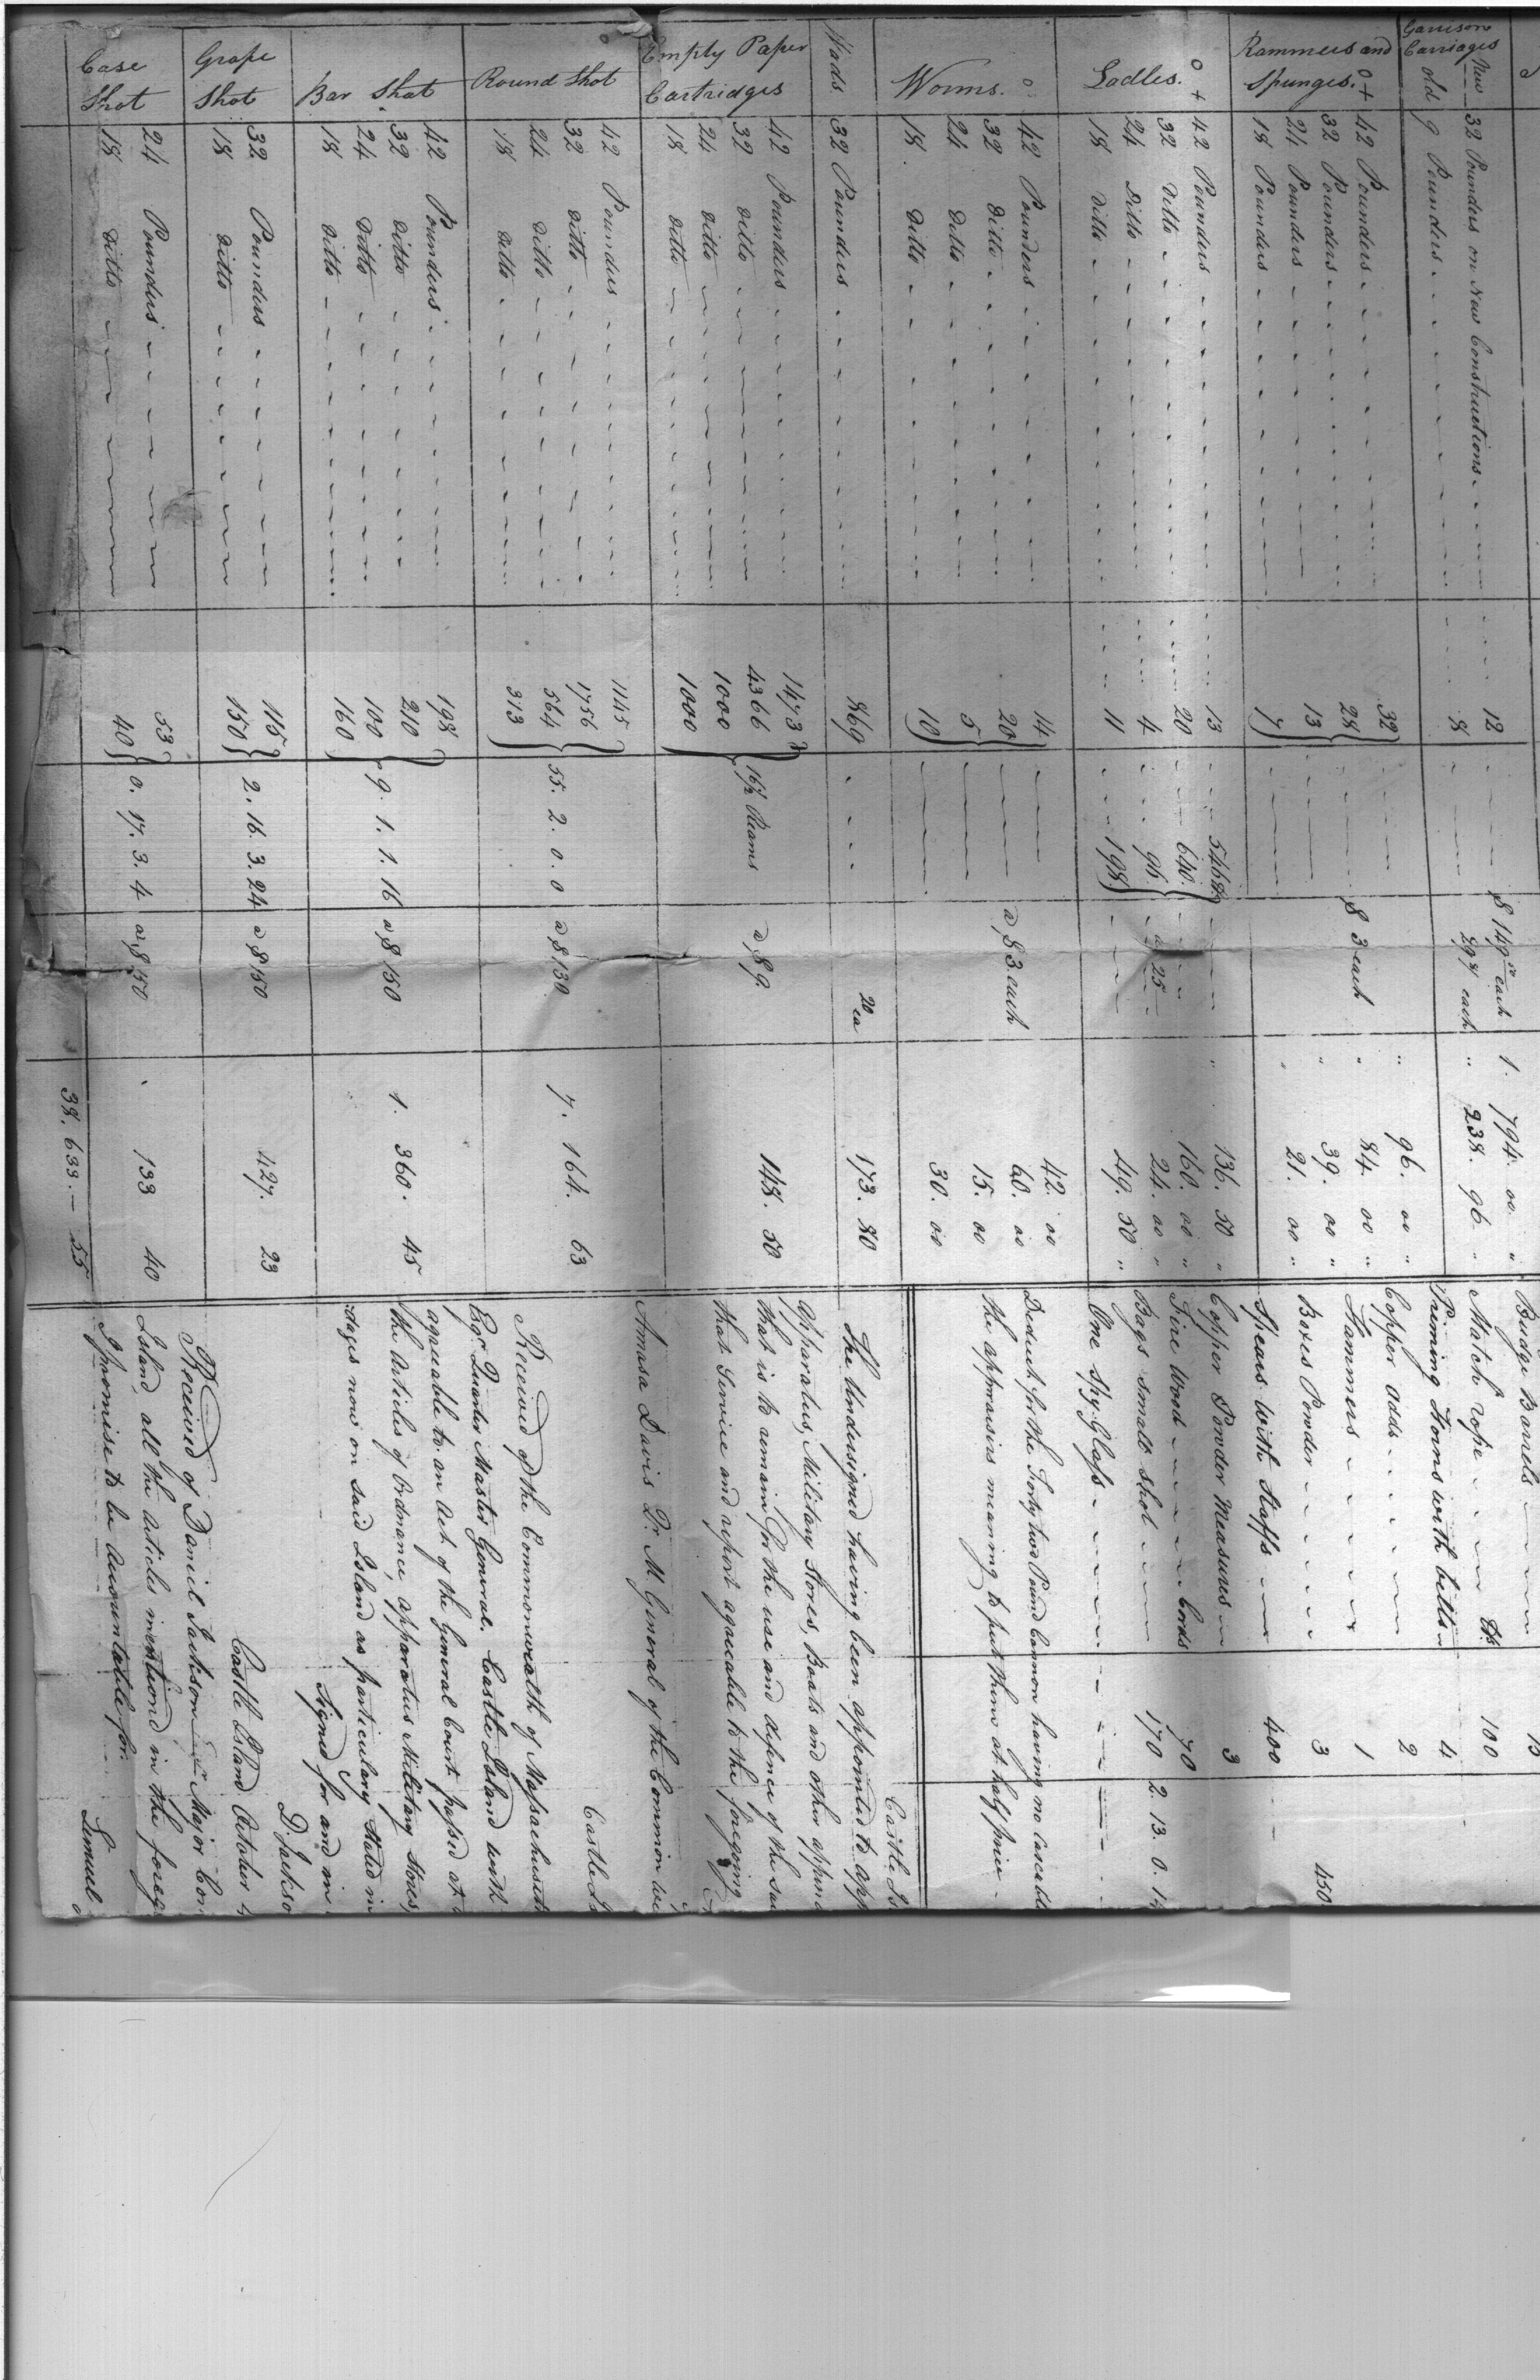 Garrison Carriages
New 32 Pounders on New Constructions 12 $ 149 50 each 1. 794. 00 "
old 9 Pounders 8 29 87 each " 238. 96 "
Rammers and Spunges. o +
42 Pounders 32 " 96. 00 "
32 Pounders 28 $ 3 each " 84. 00 "
24 Pounders 13 " 39. 00 "
18 Pounders 7 " 21. 00 "
Ladles. o +
42 Pounders 13 546 " 136. 50 "
32 Ditto 20 640. 160. 00 "
24 Ditto 4 96 a 25 24. 00 "
18 ditto 11 198 49. 50 "
Worms. o
42 Pounders 14 42. 00
32 ditto 20 a $ 3 each 60. 00
24 Ditto 5 15. 00
18 Ditto 10 30. 00
Wads 32 Pounders 869 20 ea 173. 80
Empty Paper Cartridges
42 Pounders 1473
32 ditto 4366 16½ Reams a $ 9. 148. 50
24 ditto 1000
18 ditto 1000
Round Shot
42 Pounders 1145
32 ditto 1756
24 ditto 564 55. 2. 0. 0 a $ 130 7. 164. 63
18 ditto 313
Bar Shot
42 Pounders 198
32 ditto 210 9. 1. 1. 16 a $ 150 1. 360. 45
24 Ditto 100
18 ditto 160
Grape Shot
32 Pounders 115 2. 16. 3. 24 a $ 150 427. 23
18 ditto 150
Case Shot
24 Pounders 53 0. 17. 3. 4 a $ 150 133 40
18 ditto 40
38. 633. — 55
Budge Barrels
Match rope 100
Priming Horns with bitts 4
Copper adds 2
Hammers 1
Boxes Powder 3 450
Spears with Staffs 400
Copper Powder Measures 3
Fire Wood Cords 70
Bags small shot 170 2. 13. 0. 14
One Spy-Glass
Deduct for the Forty two Pound Cannon having no
the appraisers meaning to put them at half price
Castle Is
The Undersigned having been appointed to app
apparatus, Military Stores, Boats and other
that is to remain for the use and defence of the
that Service and report agreeable to the foregoing
Amasa Davis Qr. M. General of the Common
Castle Is
Received of the Commonwealth of Massachusetts
Esqr Quarter Master General. Castle Island with
agreeable to an Act of the General Court passed at
the articles of Ordnance, apparatus Military Stores,
dages now on said Island as particulary Stated in
Signed for and in
D. Jackso
Castle Island October
Received of Daniel Jackson Major
Island, all the articles mentiond in the foreg
I promise to be accountable for
Lemuel